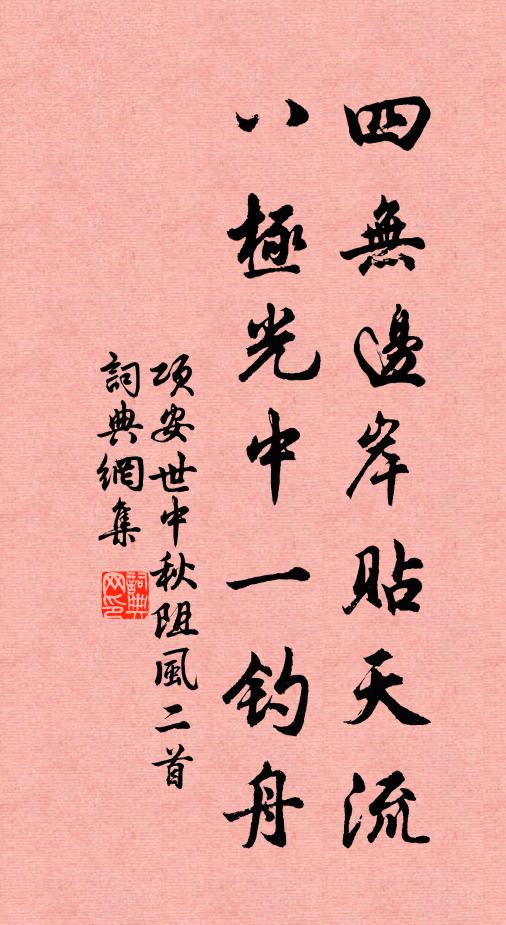 四無邊岸貼天流
八極光中一釣舟
項安世中秋阻風二首
詞典網集
詞典网印